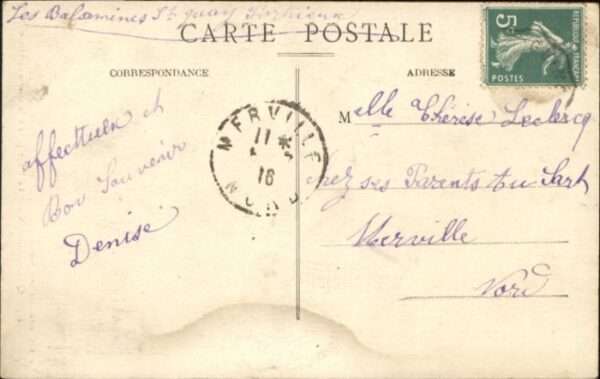 Les Balamines St quay
CARTE POSTALE
CORRESPONDANCE
ADRESSE
5c
POSTES
affectueux et
Bon Souvenir
Denise
MERVILLE
11 *
16
NORD
Melle Thérèse Leclercq
chez ses Parents au Sart
Merville
Nord